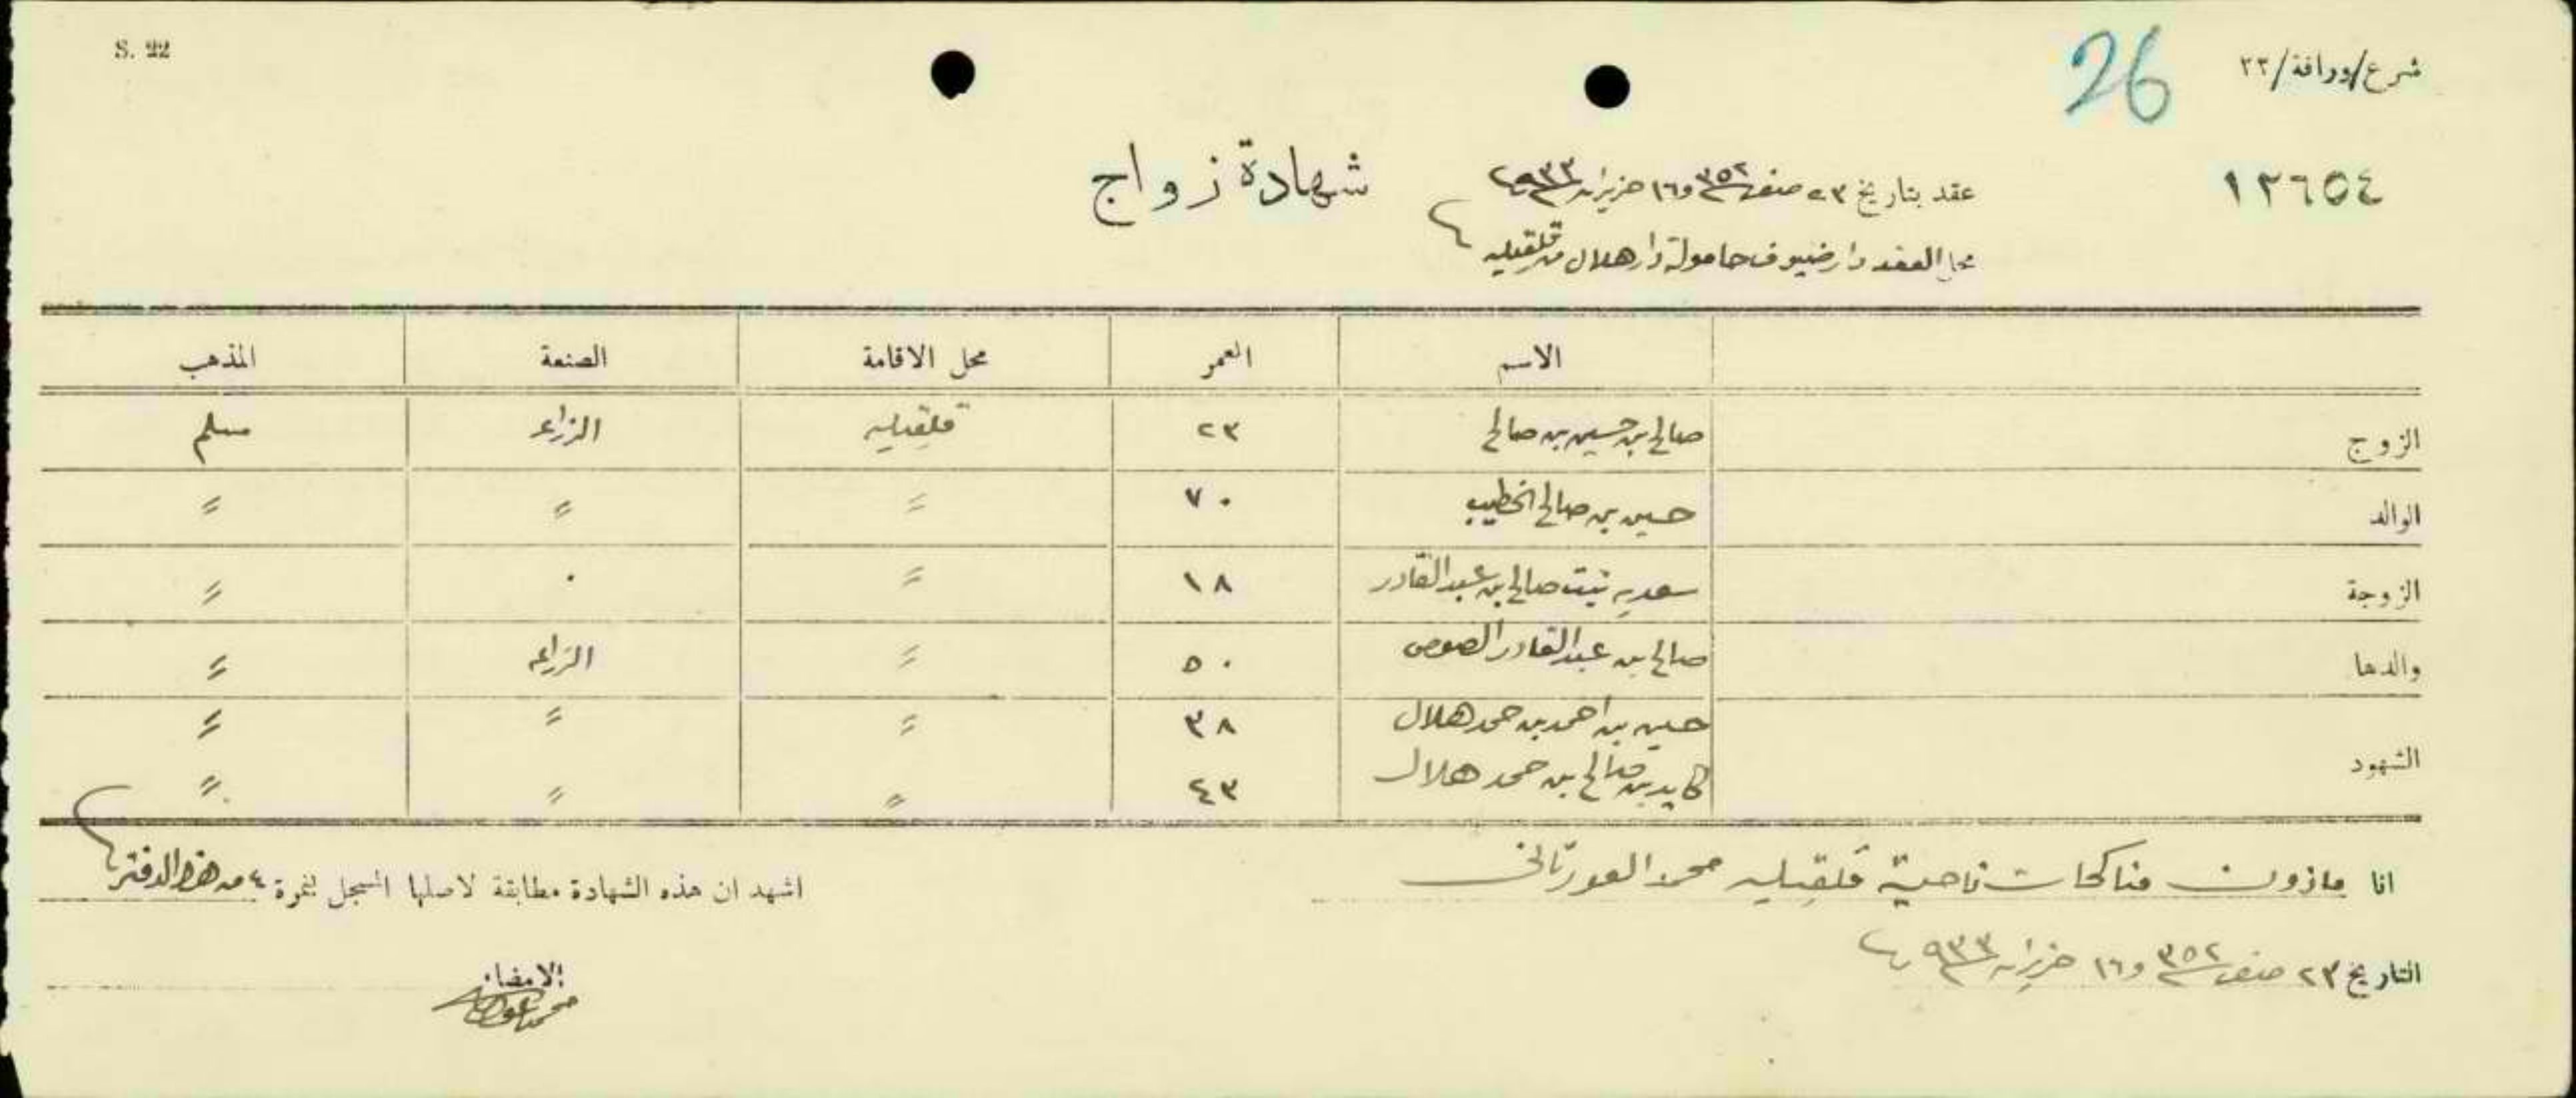 S. 22
26
شرع/وراقة/٢٢
١٢٦٥٤
شهادة زواج
عقد بتاريخ ٢٣ صفر ٣٥٢ و١٦ حزيران ٩٣٣
محل العقد دار ضيوف حامولة دار هلال من قلقيليه
الاسم العمر محل الاقامة الصنعة المذهب
الزوج صالح بن حسين بن صالح ٢٣ قلقيليه الزراعه مسلم
الوالد حسين بن صالح الخطيب ٧٠ 〃 〃 〃
الزوجة سعديه بنت صالح بن عبد القادر ١٨ 〃 ٠ 〃
والدها صالح بن عبد القادر الصوص ٥٠ 〃 الزراعه 〃
الشهود حسين بن احمد بن حمد هلال ٣٨ 〃 〃 〃
كايد بن صالح بن حمد هلال ٤٣ 〃 〃 〃
انا مأذون مناكحات ناحية قلقيليه محمد العورتاني
اشهد ان هذه الشهادة مطابقة لاصلها المسجل بنمرة ٤ من هذا الدفتر
التاريخ ٢٣ صفر ٣٥٢ و١٦ حزيران ٩٣٣
الامضاء